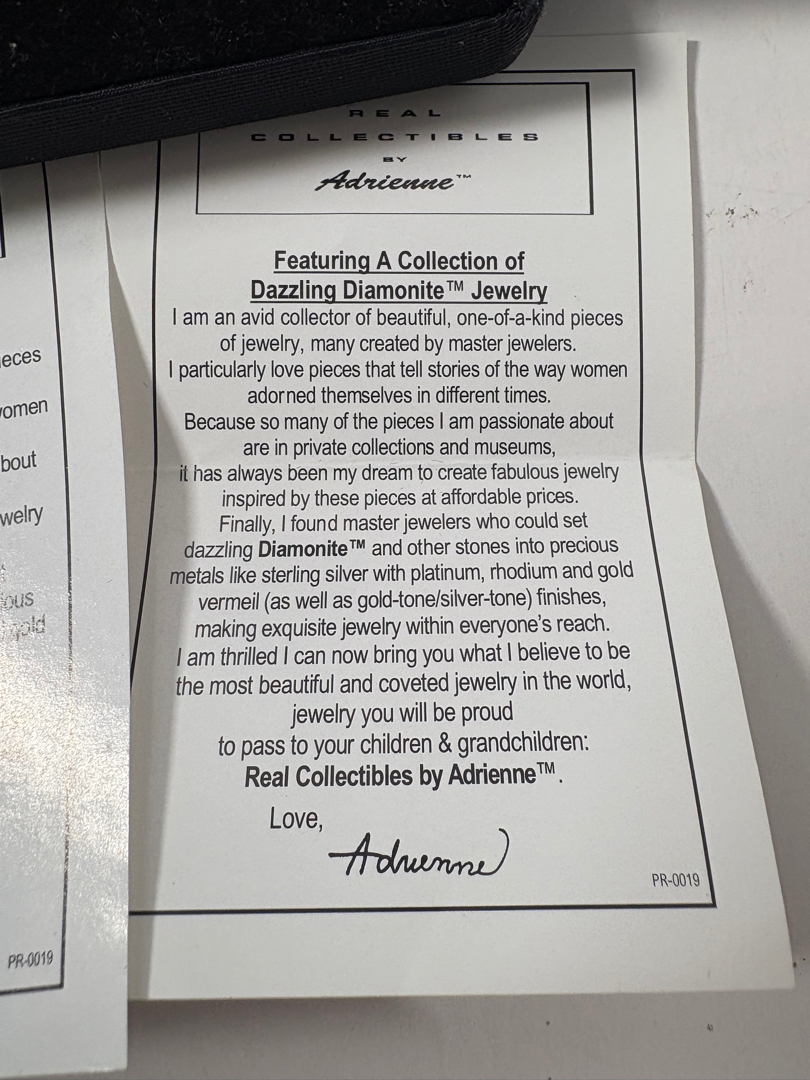 REAL
COLLECTIBLES
BY
Adrienne™
Featuring A Collection of
Dazzling Diamonite™ Jewelry
I am an avid collector of beautiful, one-of-a-kind pieces
of jewelry, many created by master jewelers.
I particularly love pieces that tell stories of the way women
adorned themselves in different times.
Because so many of the pieces I am passionate about
are in private collections and museums,
it has always been my dream to create fabulous jewelry
inspired by these pieces at affordable prices.
Finally, I found master jewelers who could set
dazzling Diamonite™ and other stones into precious
metals like sterling silver with platinum, rhodium and gold
vermeil (as well as gold-tone/silver-tone) finishes,
making exquisite jewelry within everyone's reach.
I am thrilled I can now bring you what I believe to be
the most beautiful and coveted jewelry in the world,
jewelry you will be proud
to pass to your children & grandchildren:
Real Collectibles by Adrienne™.
Love,
Adrienne
PR-0019
ieces
omen
bout
welry
ious
gold
PR-0019